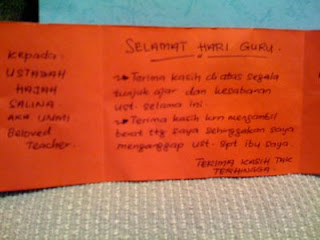 Kepada:
USTADAH
HAJAH
SALINA
AKA UMMI
Beloved
Teacher.
SELAMAT HARI GURU.
Terima kasih di atas segala
tunjuk ajar dan kesabaran
ust. selama ini.
Terima kasih krn mengambil
berat ttg saya sehinggakan saya
menganggap ust. spt ibu saya.
TERIMA KASIH TAK
TERHINGGA.